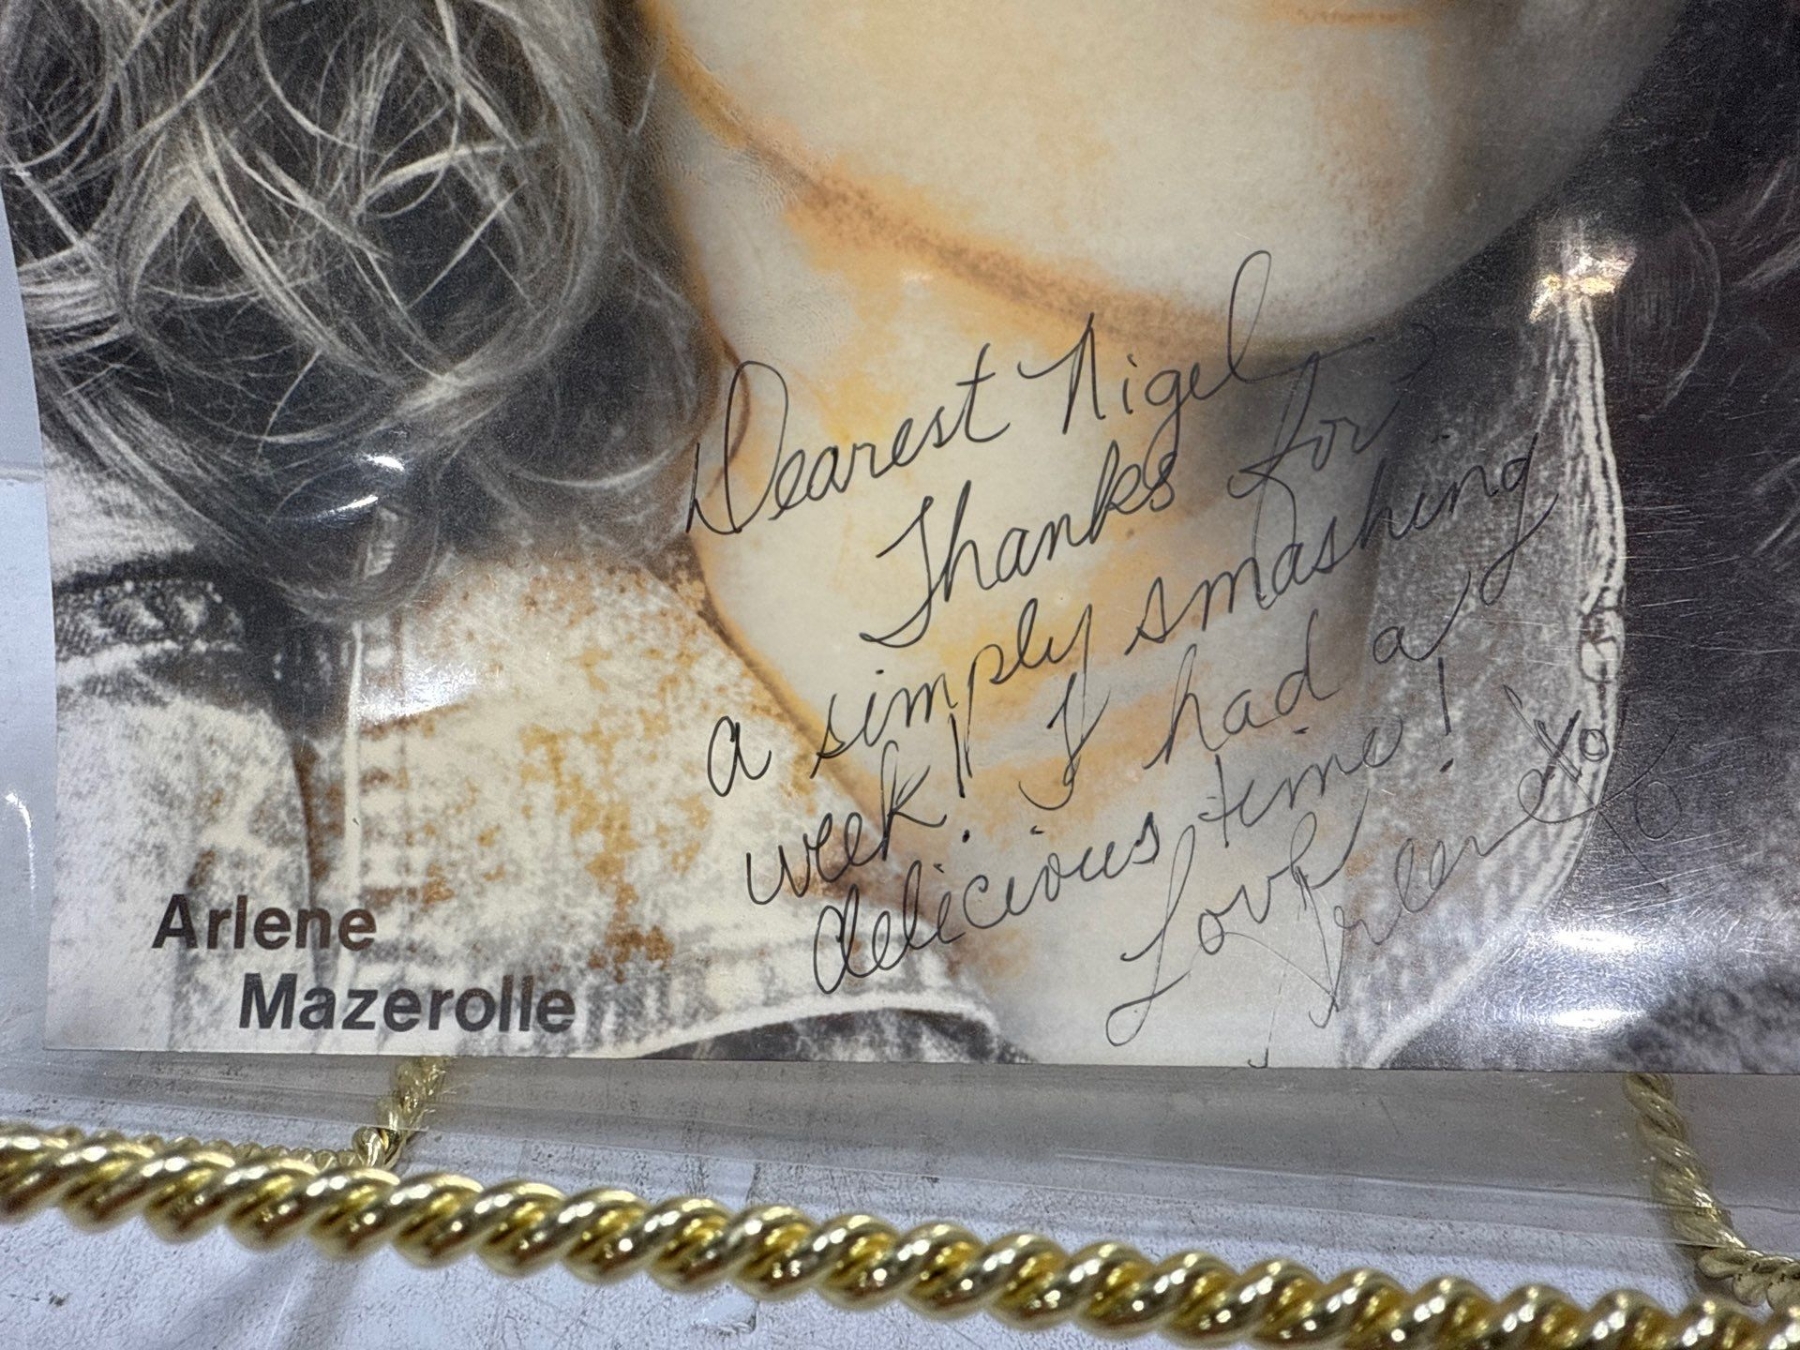 Dearest Nigel
Thanks for
a simply smashing
week! I had a
delicious time!
Love
Arlene xo
xo
Arlene
Mazerolle